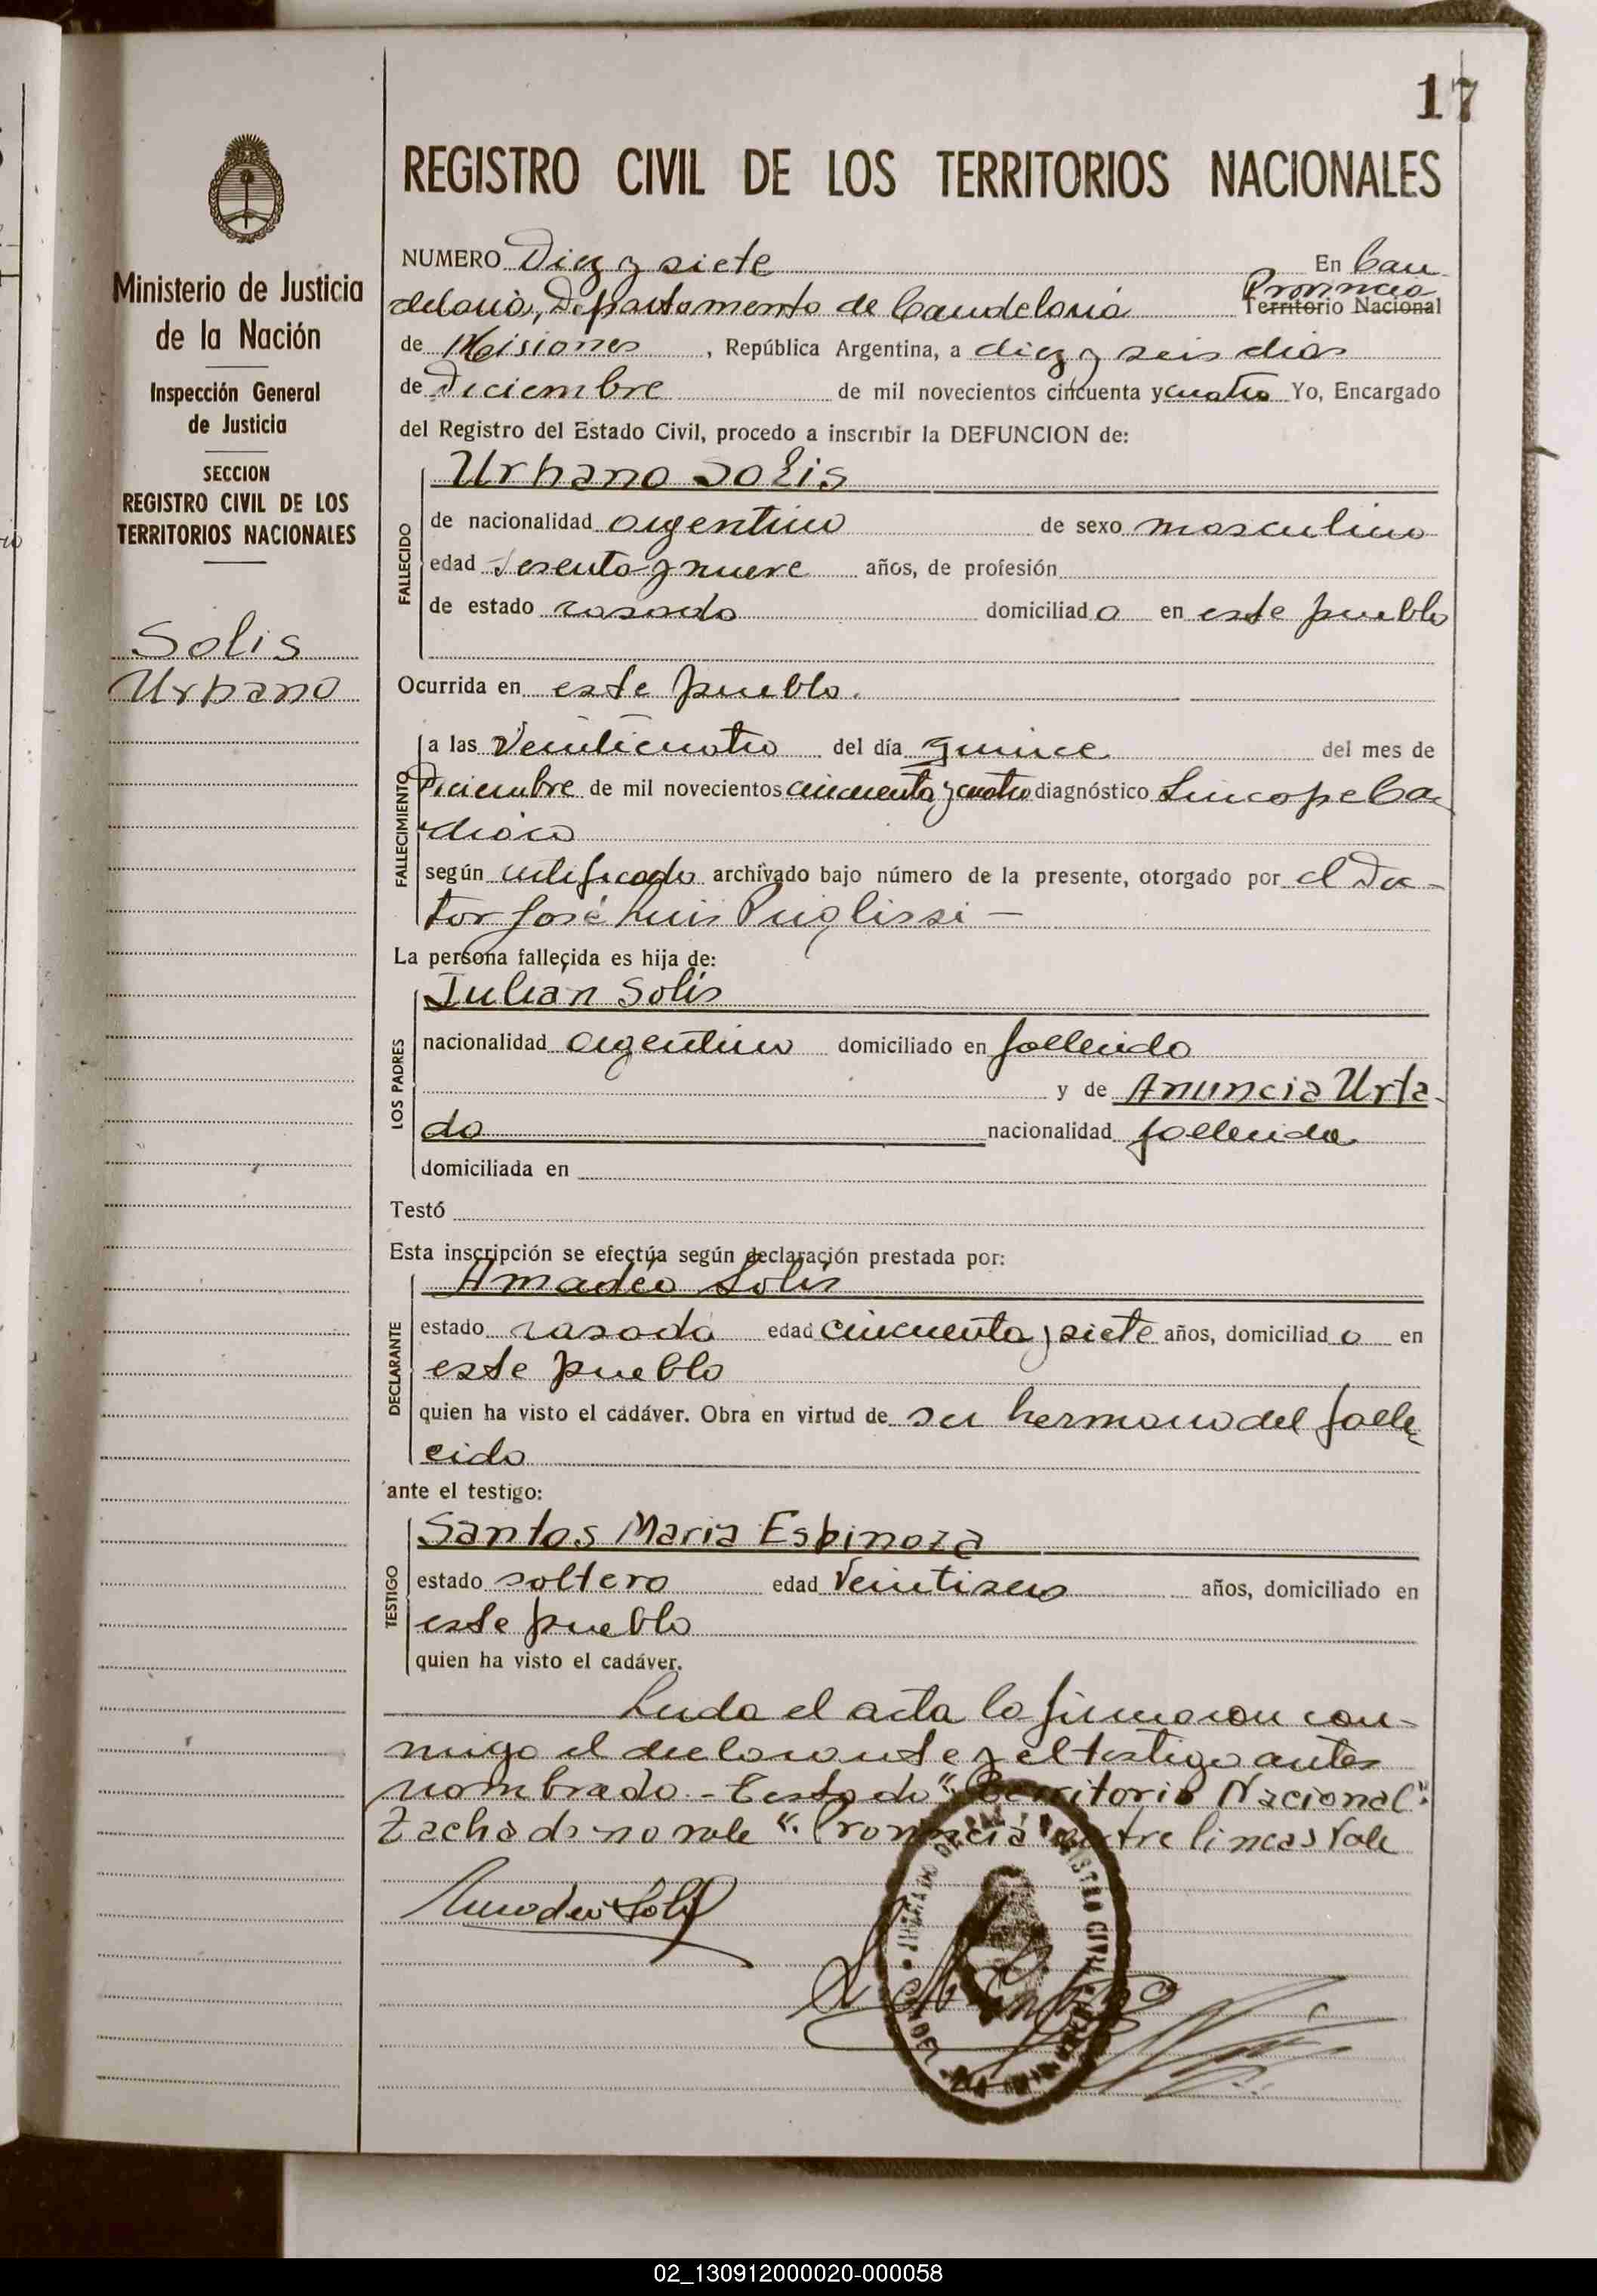 17
REGISTRO CIVIL DE LOS TERRITORIOS NACIONALES
Ministerio de Justicia
de la Nación
Inspección General
de Justicia
SECCION
REGISTRO CIVIL DE LOS
TERRITORIOS NACIONALES
Solis
Urbano
NUMERO Diez y siete En Can-
delaria, Departamento de Candelaria Provincia Territorio Nacional
de Misiones, República Argentina, a diez y seis dias
de Diciembre de mil novecientos cincuenta y cuatro Yo, Encargado
del Registro del Estado Civil, procedo a inscribir la DEFUNCION de:
FALLECIDO
Urbano Solis
de nacionalidad argentino de sexo masculino
edad Sesenta y nueve años, de profesión
de estado casado domiciliado en este pueblo
Ocurrida en este pueblo.
FALLECIMIENTO
a las Veinticuatro del día quince del mes de
Diciembre de mil novecientos cincuenta y cuatro diagnóstico Sincope Car
diaco
según certificado archivado bajo número de la presente, otorgado por el Doc-
tor José Luis Puglissi —
La persona fallecida es hija de:
LOS PADRES
Julian Solis
nacionalidad argentino domiciliado en fallecido
y de Anuncia Urta-
do nacionalidad fallecida
domiciliada en
Testó
Esta inscripción se efectúa según declaración prestada por:
DECLARANTE
Amadeo Solis
estado casado edad cincuenta y siete años, domiciliado en
este pueblo
quien ha visto el cadáver. Obra en virtud de ser hermano del falle
cido
ante el testigo:
TESTIGO
Santos Maria Espinoza
estado soltero edad Veintiseis años, domiciliado en
este pueblo
quien ha visto el cadáver.
Leida el acta la firmaron con-
migo el declarante y el testigo antes
nombrado - Testado "Territorio Nacional"
Tachado no vale "Provincia" entre lineas Vale
Amadeo Solis
02_130912000020-000058